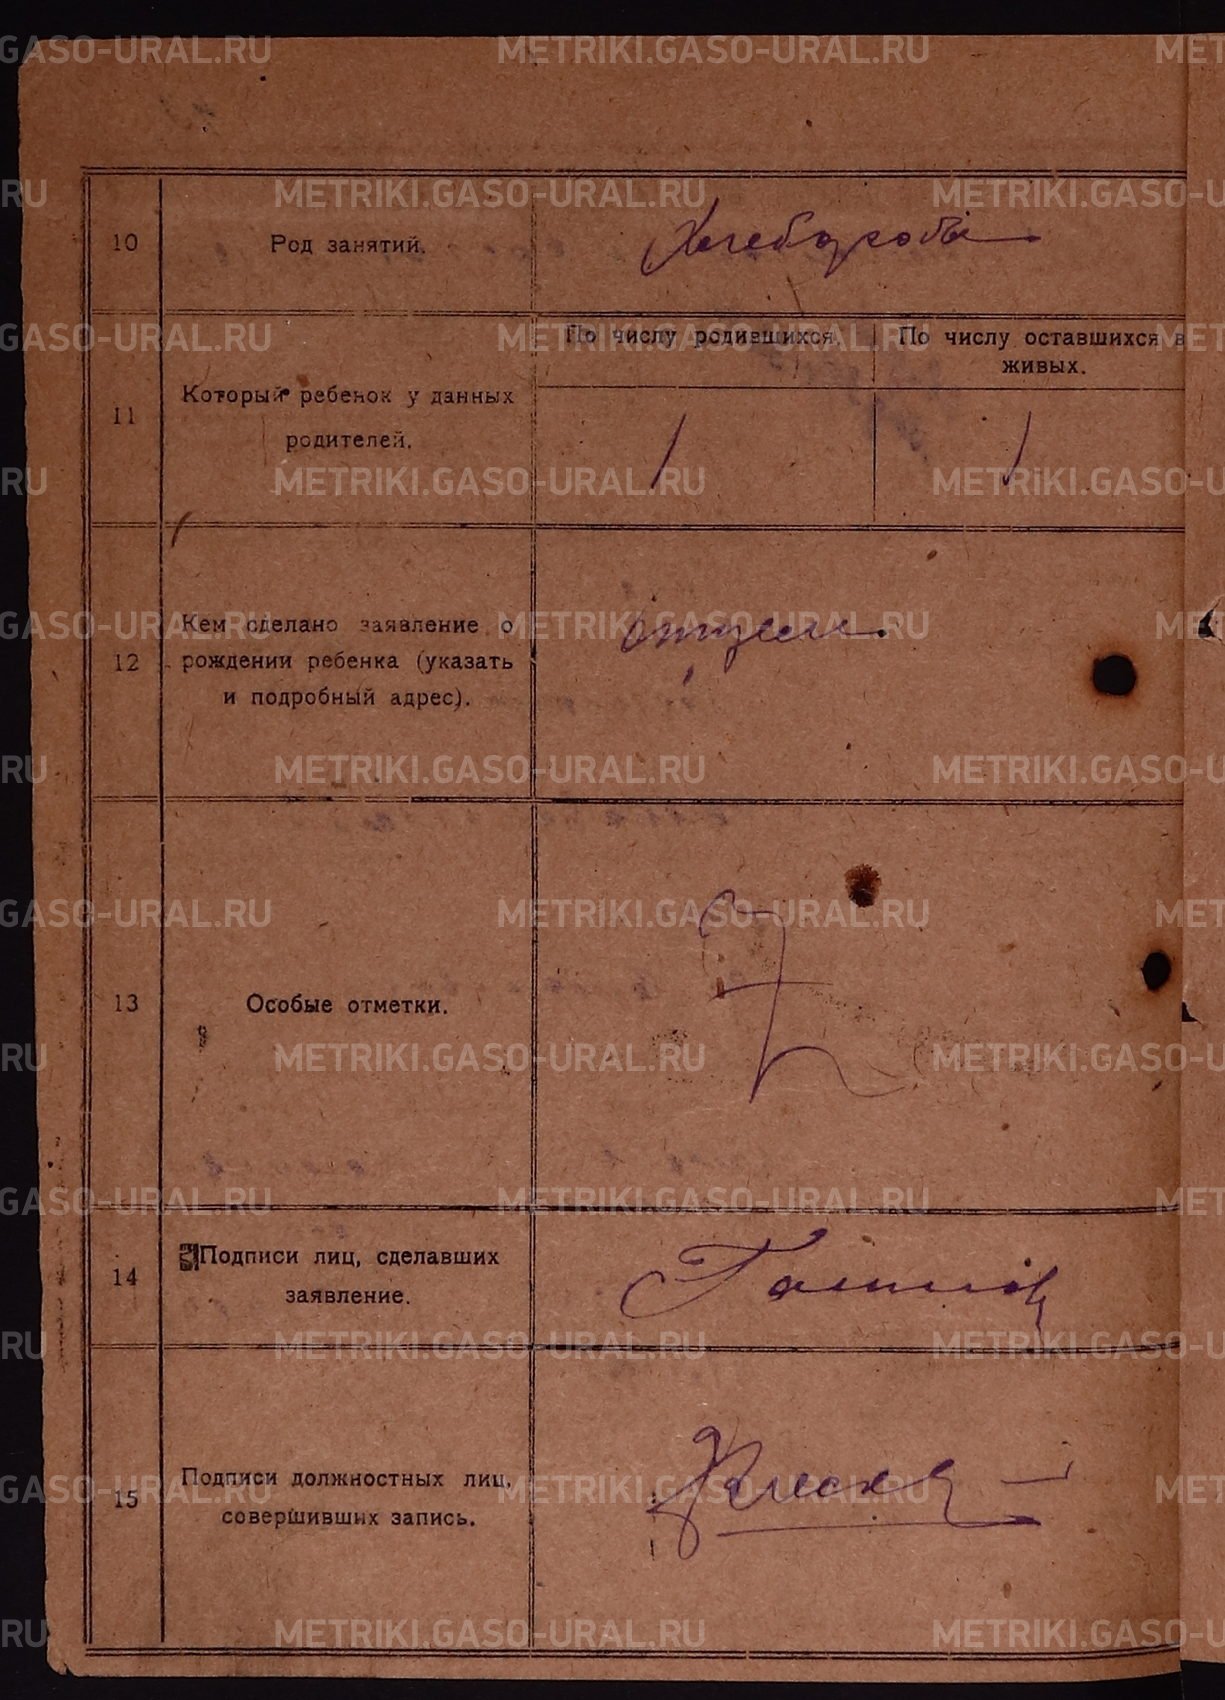 10 Род занятий. Хлебороб
11 Который ребенок у данных
родителей.
По числу родившихся.
По числу оставшихся в
живых.
1 1
12 Кем сделано заявление о
рождении ребенка (указать
и подробный адрес).
отцем.
13 Особые отметки.
14 Подписи лиц, сделавших
заявление.
15 Подписи должностных лиц,
совершивших запись.
METRIKI.GASO-URAL.RU